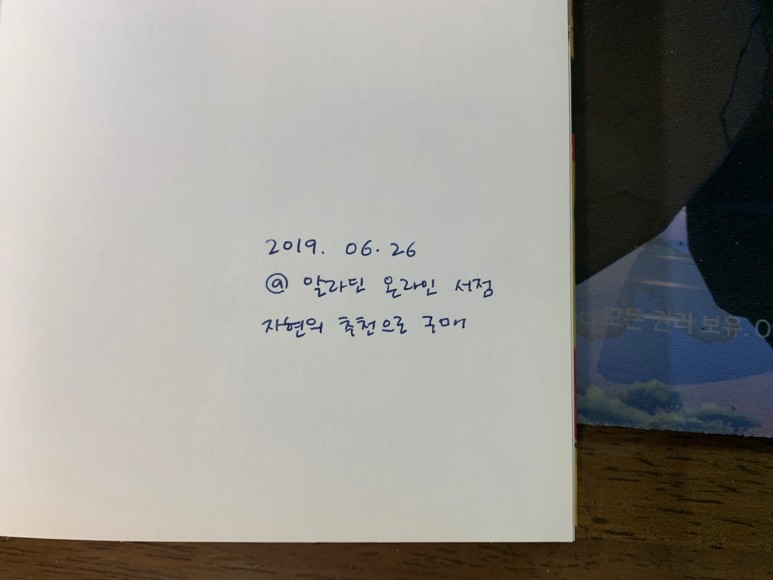 2019. 06. 26
@ 알라딘 온라인 서점
자현의 추천으로 구매
모든 권리 보유. O